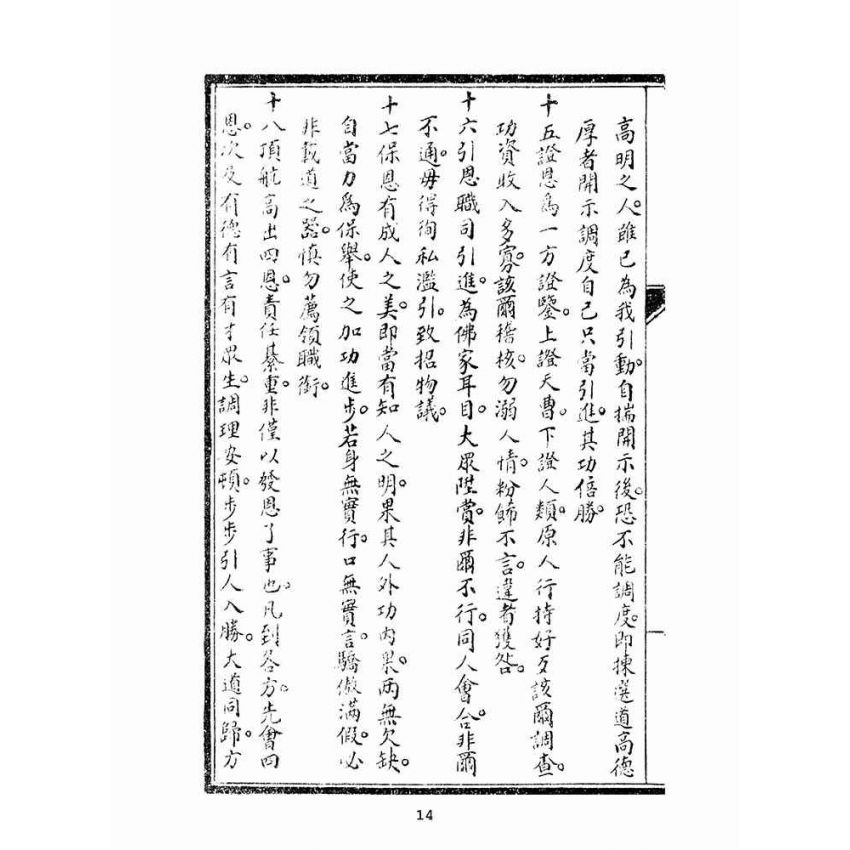 高明之人。雖已為我引動。自揣開示後。恐不能調度。即揀選道高德
厚者開示調度自己只當引進。其功倍勝。
十五證恩為一方證鑒。上證天曹。下證人類。原人行持好歹該爾調查。
功資收入多寡。該爾稽核。勿溺人情。粉飾不言。違者獲咎。
十六引恩職司引進。為佛家耳目。大眾陞賞。非爾不行。同人會合。非爾
不通。毋得徇私濫引。致招物議。
十七保恩有成人之美。即當有知人之明。果其人外功內果。兩無欠缺。
自當力為保舉。使之加功進步。若身無實行。口無實言。驕傲滿假。必
非載道之器。慎勿薦領職銜。
十八頂航高出四恩。責任綦重。非僅以發恩了事也。凡到各方。先會四
恩。次及有德有言有才眾生。調理安頓。步步引人入勝。大道同歸。方
14